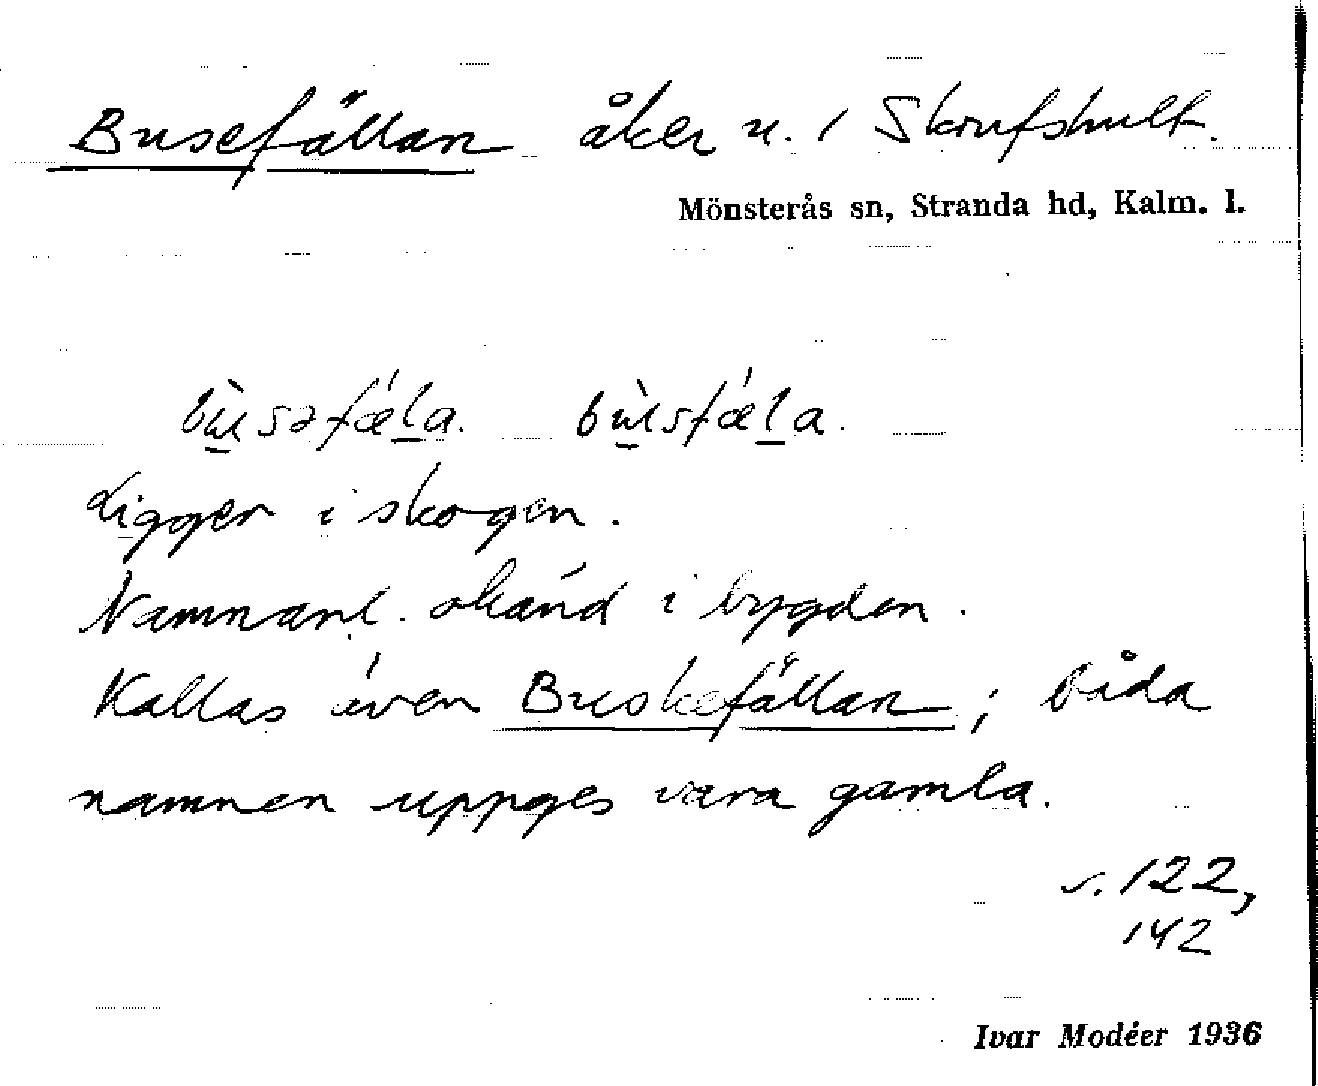 Busefällan åker u. / Skrufshult.
Mönsterås sn, Stranda hd, Kalm. l.
Ligger i skogen.
Namnanl. okänd i bygden.
Kallas även Buskefällan; båda
namnen uppges vara gamla.
s. 122,
142
Ivar Modéer 1936